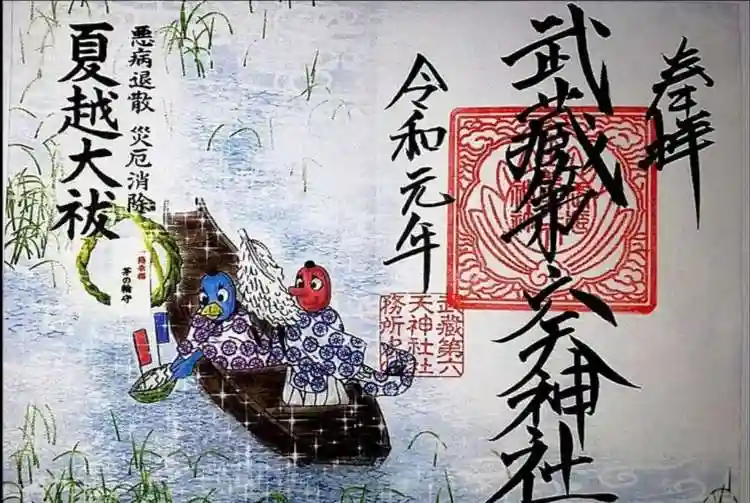 奉拝
武蔵第六天神社
令和元年
武蔵第六
天神社社
務所之印
悪病退散 災厄消除
夏越大祓
茅の輪守